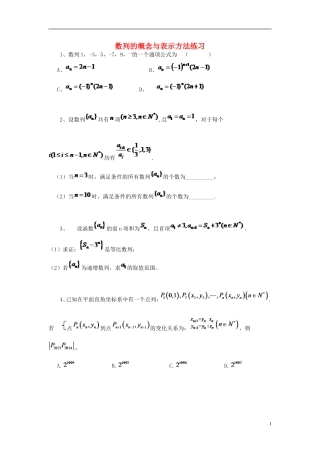 数列的概念与表示方法练习
1、数列1，-3，5，-7，9，-的一个通项公式为 （ ）
A、a_n=2n-1 B、a_n=(-1)^{n+1}(2n-1)
C、a_n=(-1)^n(2n-1) D、a_n=(-1)^n(2n+1)
2、设数列{a_n}共有n项(n≥3,n∈N*)，且a_1=a_n，对于每个
i(1≤i≤n-1,n∈N*)均有 a_{i+1}/a_i∈{1/3,1,3}.
（1）当n=3时，满足条件的所有数列{a_n}的个数为________；
（2）当n=10时，满足条件的所有数列{a_n}的个数为________.
3、 设函数{a_n}的前n项和为S_n，且首项a_1≠3,a_{n+1}=S_n+3^n(n∈N*).
（1）求证：{S_n-3^n}是等比数列；
（2）若{a_n}为递增数列，求a_1的取值范围。
4、已知在平面直角坐标系中有一个点列：P_1(0,1),P_2(x_2,y_2),⋯,P_n(x_n,y_n)(n∈N*).
若 点P_n(x_n,y_n)到点P_{n+1}(x_{n+1},y_{n+1})的变化关系为： x_{n+1}=y_n-x_n y_{n+1}=y_n+x_n (n∈N*)，则
|P_{2013}P_{2014}|
A.2^{1004} B.2^{1005} C.2^{1006} D.2^{1007}
1